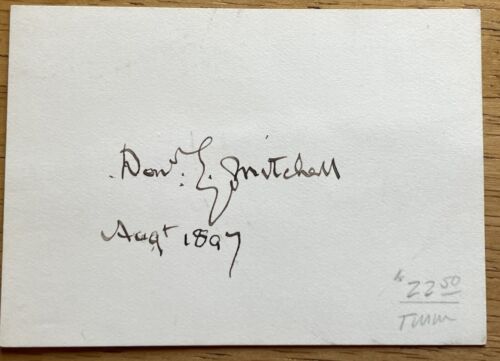 Dond. G. Mitchell
Augt 1897
22 50